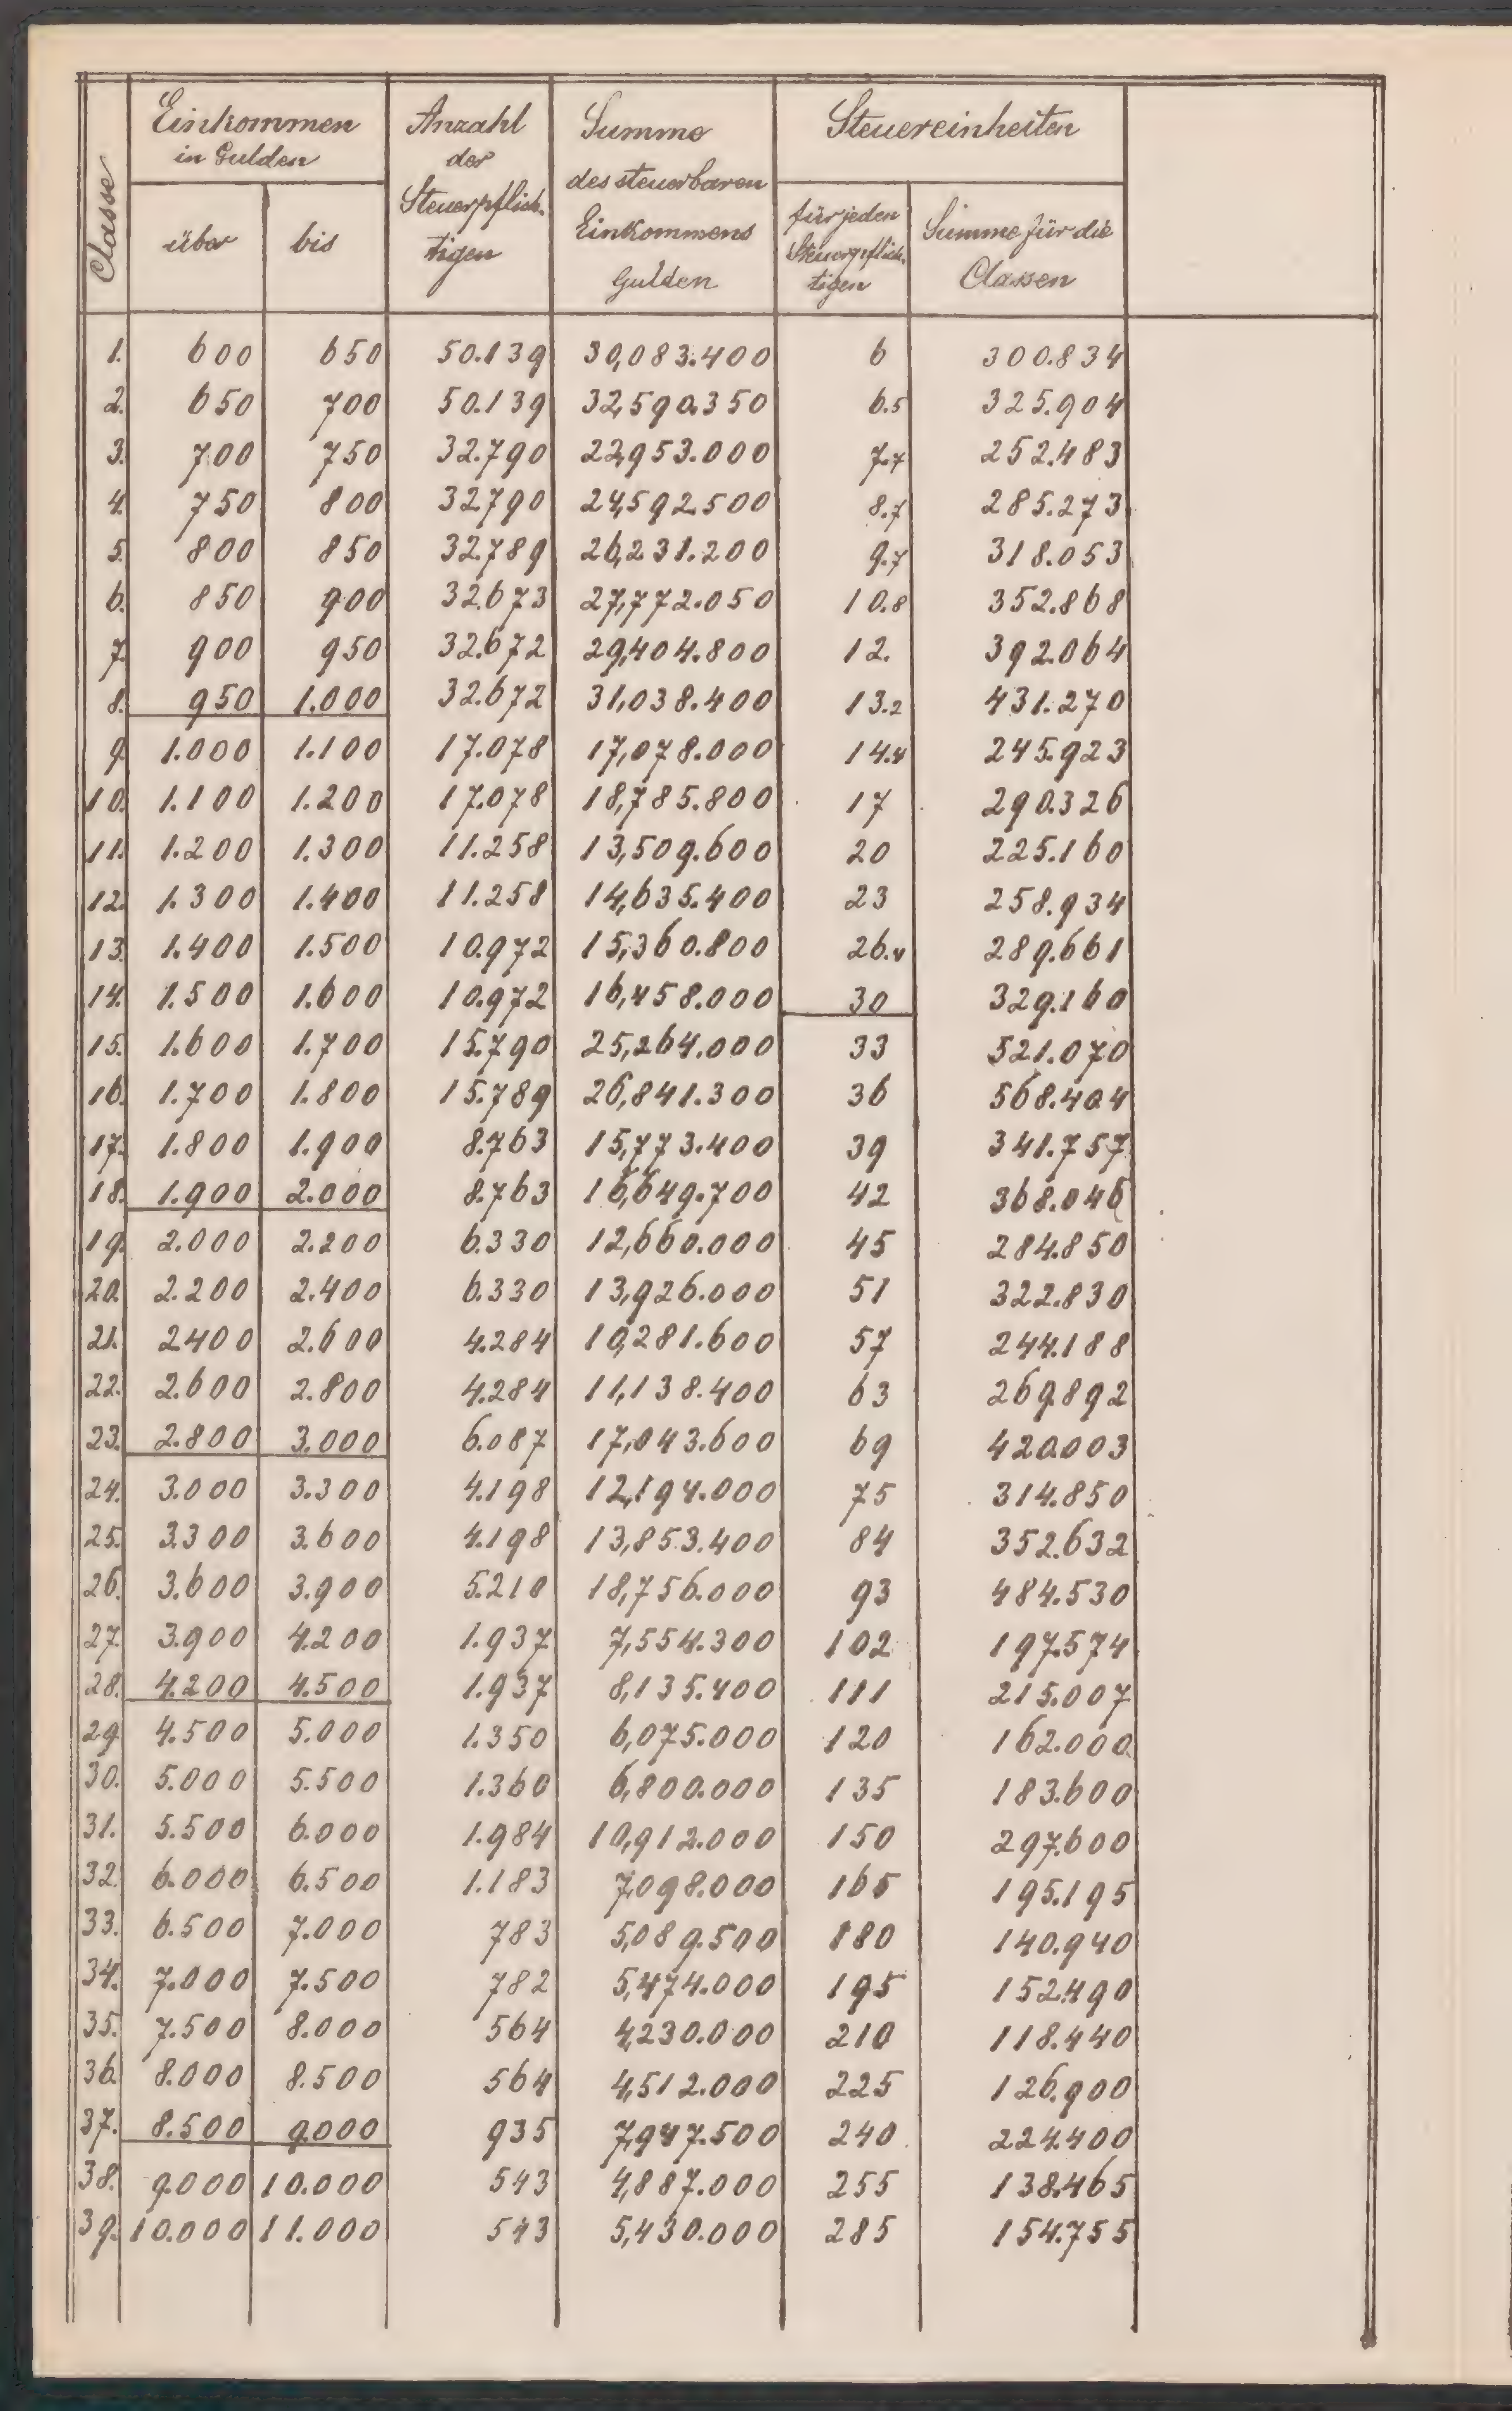 Classe
Einkommen
in Gulden
über bis
Anzahl
der
Steuerpflich-
tigen
Summe
des steuerbaren
Einkommens
Gulden
Steuereinheiten
für jeden
Steuerpflich-
tigen
Summe für die
Classen
1. 600 650 50.139 30,083.400 6 300.834
2. 650 700 50.139 32,590.350 6.5 325.904
3. 700 750 32.790 22,953.000 7.7 252.483
4. 750 800 32.790 24,592.500 8.7 285.273
5. 800 850 32.789 26,231.200 9.7 318.053
6. 850 900 32.673 27,772.050 10.8 352.868
7. 900 950 32.672 29,404.800 12. 392.064
8. 950 1.000 32.672 31,038.400 13.2 431.270
9. 1.000 1.100 17.078 17,078.000 14.4 245.923
10. 1.100 1.200 17.078 18,785.800 17 290.326
11. 1.200 1.300 11.258 13,509.600 20 225.160
12. 1.300 1.400 11.258 14,635.400 23 258.934
13. 1.400 1.500 10.972 15,360.800 26.4 289.661
14. 1.500 1.600 10.972 16,458.000 30 329.160
15. 1.600 1.700 15.790 25,264.000 33 521.070
16. 1.700 1.800 15.789 26,841.300 36 568.404
17. 1.800 1.900 8.763 15,773.400 39 341.757
18. 1.900 2.000 8.763 16,649.700 42 368.046
19. 2.000 2.200 6.330 12,660.000 45 284.850
20. 2.200 2.400 6.330 13,926.000 51 322.830
21. 2400 2.600 4.284 10,281.600 57 244.188
22. 2.600 2.800 4.284 11,138.400 63 269.892
23. 2.800 3.000 6.087 17,043.600 69 420.003
24. 3.000 3.300 4.198 12,194.000 75 314.850
25. 3.300 3.600 4.198 13,853.400 84 352.632
26. 3.600 3.900 5.210 18,756.000 93 484.530
27. 3.900 4.200 1.937 7,554.300 102 197.574
28. 4.200 4.500 1.937 8,135.400 111 215.007
29. 4.500 5.000 1.350 6,075.000 120 162.000
30. 5.000 5.500 1.360 6,800.000 135 183.600
31. 5.500 6.000 1.984 10,912.000 150 297.600
32. 6.000 6.500 1.183 7,098.000 165 195.195
33. 6.500 7.000 783 5,089.500 180 140.940
34. 7.000 7.500 782 5,474.000 195 152.490
35. 7.500 8.000 564 4,230.000 210 118.440
36. 8.000 8.500 564 4,512.000 225 126.900
37. 8.500 9.000 935 7,947.500 240 224.400
38. 9.000 10.000 543 4,887.000 255 138.465
39. 10.000 11.000 543 5,430.000 285 154.755